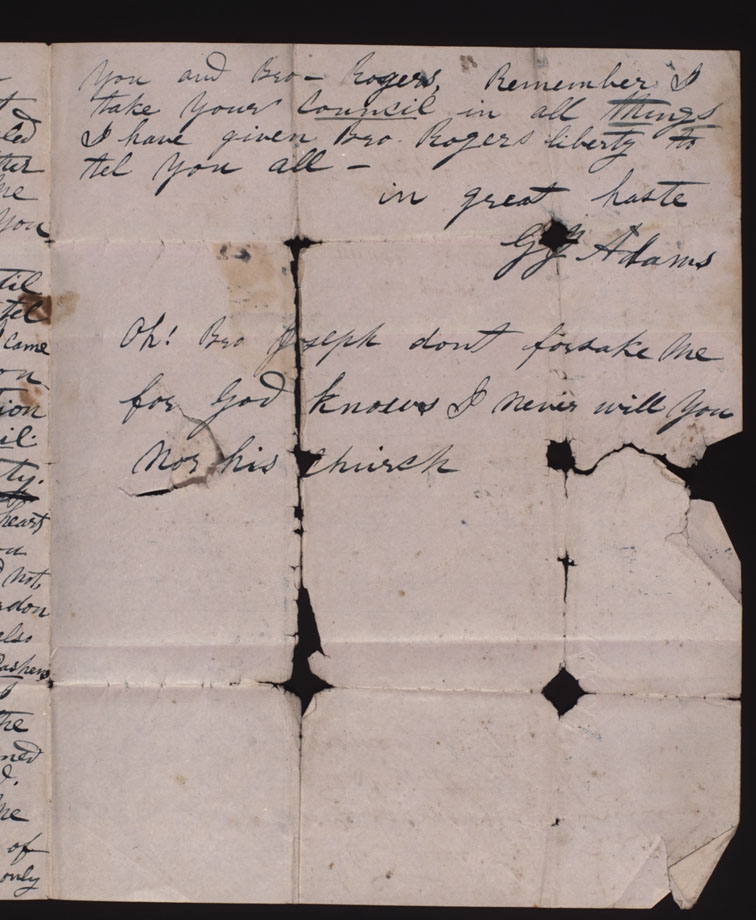 You and Bro— Rogers, Remember I
take Your Council in all things
I have given Bro. Rogers liberty to
tel You all —
in great haste
G J Adams
Oh! Bro Joseph dont forsake me
for God knows I never will You
Nor his Church
led
ther
me
You
til
tel
came
on
tion
il:
ty.
heart
not
don
also
I
the
ned
me
of
only